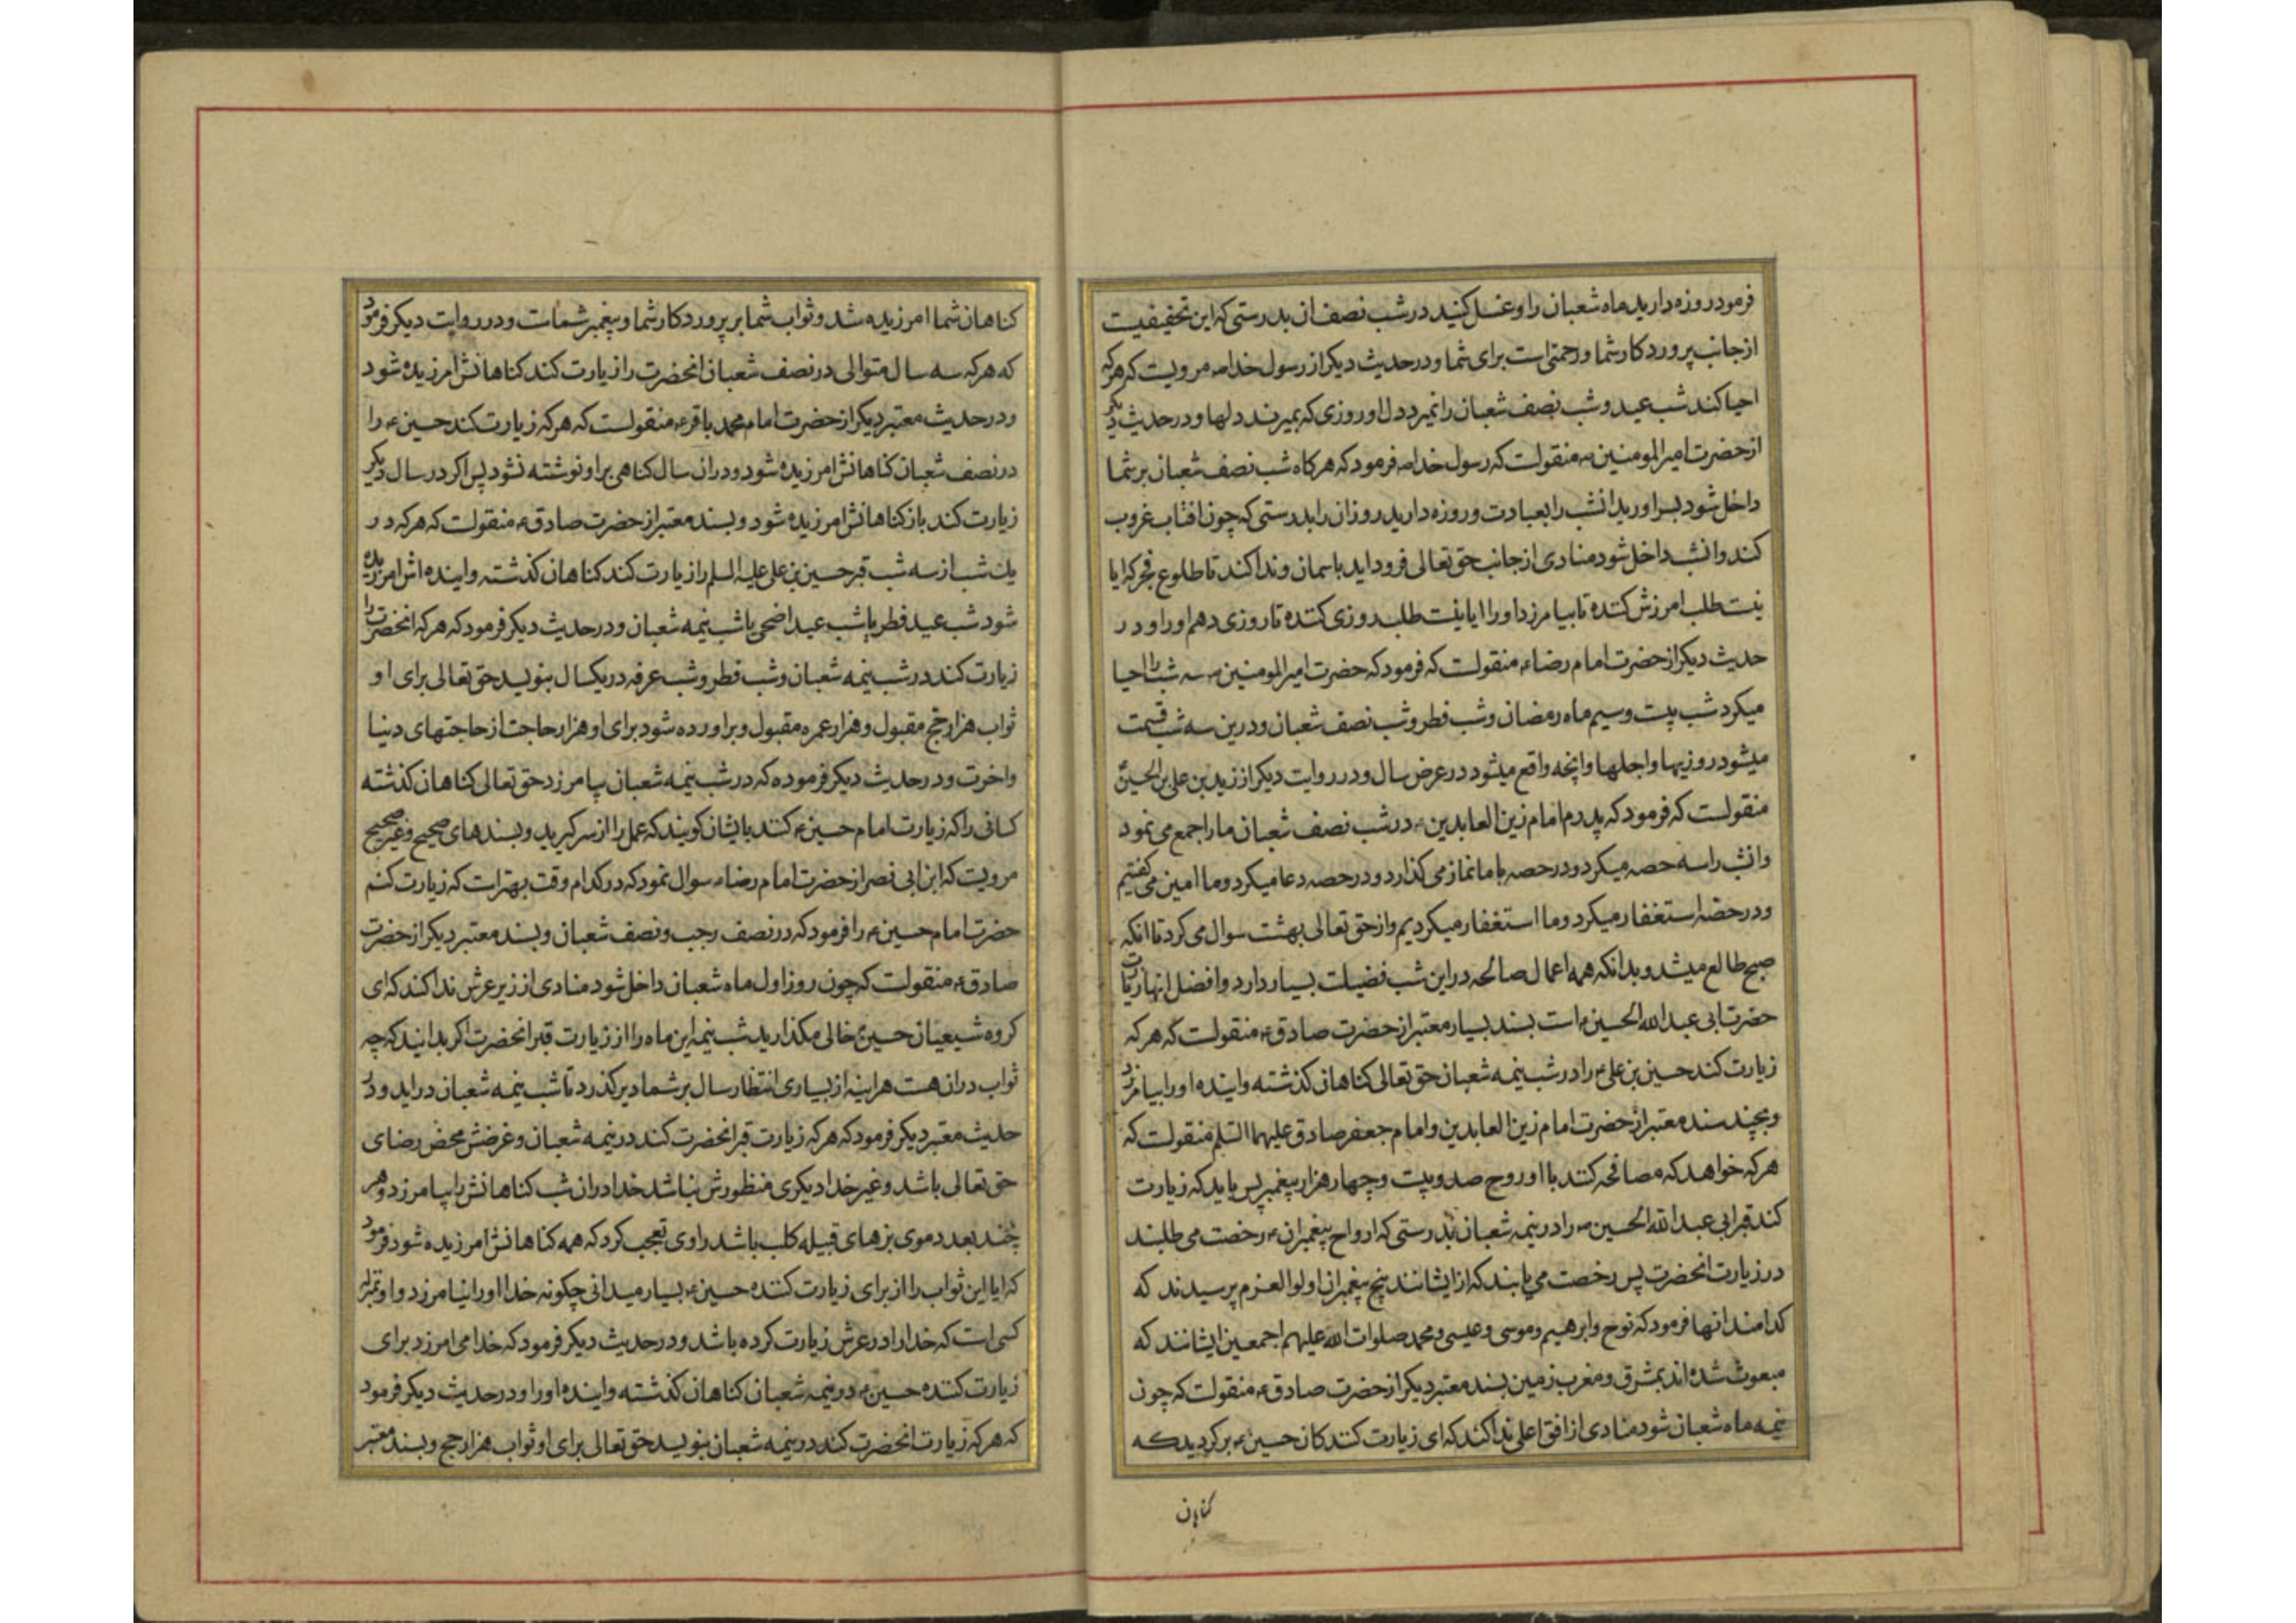 فرمود روزه دارید ماه شعبان را و غسل کنید در شب نصف ان بدرستی که این تخفیفیست
از جانب پروردکار شما و رحمتی است برای شما و در حدیث دیکر از رسول خدا ص مرویست که هر که
احیا کند شب عید و شب نصف شعبان را نمیرد دل او روزی که بمیرند دلها و در حدیث دیکر
از حضرت امیر المومنین ع منقولست که رسول خدا ص فرمود که هر کاه شب نصف شعبان بر شما
داخل شود بسر اورید انشب را بعبادت و روزه دارید روز ان را بدرستی که چون افتاب غروب
کند و انشب داخل شود منادی از جانب حق تعالی فرود اید باسمان و ندا کند تا طلوع فجر که ایا
نیست طلب امرزش کننده تا بیامرزد او را ایا نیست طلب روزی کننده تا روزی دهم او را و در
حدیث دیکر از حضرت امام رضا ع منقولست که فرمود که حضرت امیر المومنین ع سه شب را احیا
میکرد شب بیست و سیم ماه رمضان و شب فطر و شب نصف شعبان و درین سه شب قسمت
میشود روزیها و اجلها و انچه واقع میشود در عرض سال و در روایت دیکر از زید بن علی بن الحسین ع
منقولست که فرمود که پدرم امام زین العابدین ع در شب نصف شعبان ما را جمع می نمود
و انشب را سه حصه میکرد و در حصه با ما نماز می کذارد و در حصه دعا میکرد و ما امین می کفتیم
و در حصه استغفار میکرد و ما استغفار میکردیم و از حق تعالی بهشت سوال می کرد تا انکه
صبح طالع میشد و بدانکه همه اعمال صالحه در این شب فضیلت بسیار دارد و افضل انها زیارت
حضرت ابی عبد الله الحسین ع است بسند بسیار معتبر از حضرت صادق ع منقولست که هر که
زیارت کند حسین بن علی ع را در شب نیمه شعبان حق تعالی کناهان کذشته و اینده او را بیامرزد
و بچند سند معتبر از حضرت امام زین العابدین و امام جعفر صادق علیهما السلم منقولست که
هر که خواهد که مصافحه کنند با او روح صد و بیست و چهار هزار پیغمبر پس باید که زیارت
کند قبر ابی عبد الله الحسین ع را در نیمه شعبان بدرستی که ارواح پیغمبران ع رخصت می طلبند
در زیارت انحضرت پس رخصت می یابند که از ایشانند پنج پیغمبران اولو العزم پرسیدند که
کدامند انها فرمود که نوح و ابرهیم و موسی و عیسی و محمد صلوات الله علیهم اجمعین ایشانند که
مبعوث شده اند بمشرق و مغرب زمین بسند معتبر دیکر از حضرت صادق ع منقولست که چون
نیمه ماه شعبان شود منادی از افق اعلی ندا کند که ای زیارت کنندکان حسین ع بر کردید که
کناهان
کناهان شما امرزیده شد و ثواب شما بر پروردکار شما و پیغمبر شماست و در روایت دیکر فرمود
که هر که سه سال متوالی در نصف شعبان انحضرت را زیارت کند کناهانش امرزیده شود
و در حدیث معتبر دیکر از حضرت امام محمد باقر ع منقولست که هر که زیارت کند حسین ع را
در نصف شعبان کناهانش امرزیده شود و در ان سال کناهی بر او نوشته نشود پس اکر در سال دیکر
زیارت کند باز کناهانش امرزیده شود و بسند معتبر از حضرت صادق ع منقولست که هر که در
یک شب از سه شب قبر حسین بن علی علیه السلم را زیارت کند کناهان کذشته و اینده اش امرزیده
شود شب عید فطر یا شب عید اضحی یا شب نیمه شعبان و در حدیث دیکر فرمود که هر که انحضرت را
زیارت کند در شب نیمه شعبان و شب فطر و شب عرفه در یکسال بنویسد حق تعالی برای او
ثواب هزار حج مقبول و هزار عمره مقبول و براورده شود برای او هزار حاجت از حاجتهای دنیا
و اخرت و در حدیث دیکر فرموده که در شب نیمه شعبان بیامرزد حق تعالی کناهان کذشته
کسانی را که زیارت امام حسین ع کنند بایشان کویند که عمل را از سر کیرید و بسندهای صحیح و غیر صحیح
مرویست که ابن ابی نصر از حضرت امام رضا ع سوال نمود که در کدام وقت بهتر است که زیارت کنم
حضرت امام حسین ع را فرمود که در نصف رجب و نصف شعبان و بسند معتبر دیکر از حضرت
صادق ع منقولست که چون روز اول ماه شعبان داخل شود منادی از زیر عرش ندا کند که ای
کروه شیعیان حسین ع خالی مکذارید شب نیمه این ماه را از زیارت قبر انحضرت اکر بدانید که چه
ثواب در ان هست هراینه از بسیاری انتظار سال بر شما دیر کذرد تا شب نیمه شعبان در اید و در
حدیث معتبر دیکر فرمود که هر که زیارت قبر انحضرت کند در نیمه شعبان و غرضش محض رضای
حق تعالی باشد و غیر خدا دیکری منظورش نباشد خدا در ان شب کناهانش را بیامرزد و هر
چند بعدد موی بزهای قبیله کلب باشد راوی تعجب کرد که همه کناهانش امرزیده شود فرمود
که ایا این ثواب را از برای زیارت کننده حسین ع بسیار میدانی چکونه خدا او را نیامرزد و او بمنزله
کسی است که خدا را در عرش زیارت کرده باشد و در حدیث دیکر فرمود که خدا می امرزد برای
زیارت کننده حسین ع در نیمه شعبان کناهان کذشته و اینده او را و در حدیث دیکر فرمود
که هر که زیارت انحضرت کند در نیمه شعبان بنویسد حق تعالی برای او ثواب هزار حج و بسند معتبر